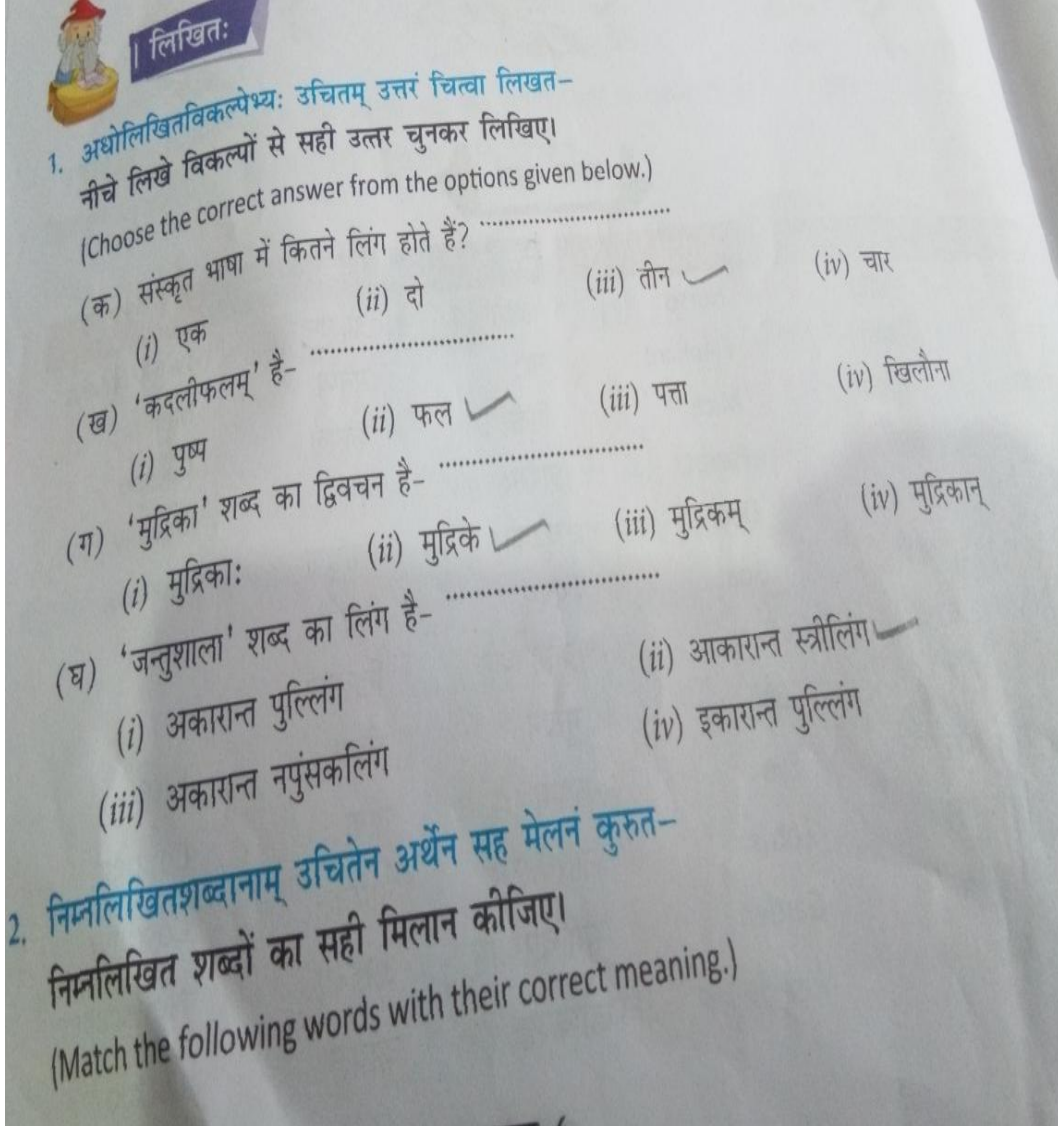 लिखितः
1. अधोलिखितविकल्पेभ्यः उचितम् उत्तरं चित्वा लिखत–
नीचे लिखे विकल्पों से सही उत्तर चुनकर लिखिए।
(Choose the correct answer from the options given below.)
(क) संस्कृत भाषा में कितने लिंग होते हैं? ..............................
(i) एक (ii) दो (iii) तीन ✓ (iv) चार
(ख) 'कदलीफलम्' है– ..............................
(i) पुष्प (ii) फल ✓ (iii) पत्ता (iv) खिलौना
(ग) 'मुद्रिका' शब्द का द्विवचन है– ..............................
(i) मुद्रिकाः (ii) मुद्रिके ✓ (iii) मुद्रिकम् (iv) मुद्रिकान्
(घ) 'जन्तुशाला' शब्द का लिंग है– ..............................
(i) अकारान्त पुल्लिंग (ii) आकारान्त स्त्रीलिंग ✓
(iii) अकारान्त नपुंसकलिंग (iv) इकारान्त पुल्लिंग
2. निम्नलिखितशब्दानाम् उचितेन अर्थेन सह मेलनं कुरुत–
निम्नलिखित शब्दों का सही मिलान कीजिए।
(Match the following words with their correct meaning.)